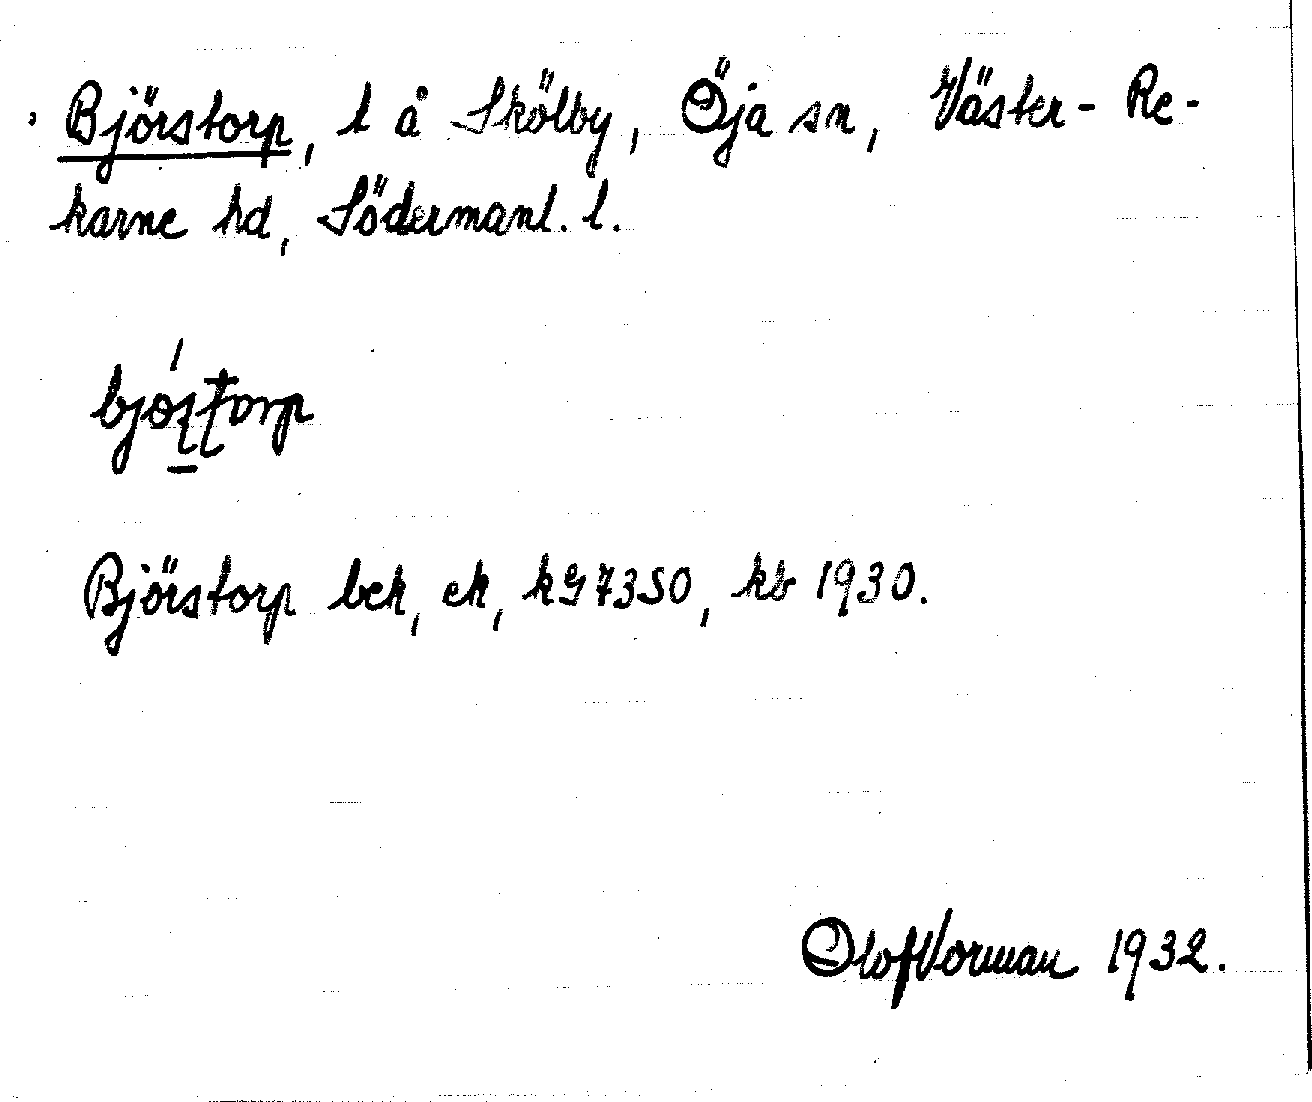 Björstorp, l å Skölby, Öja sn, Väster-Re-
karne hd, Södermanl. l.
Björstorp bek, ek, kG7350, kb 1930.
Olof Vorman 1932.